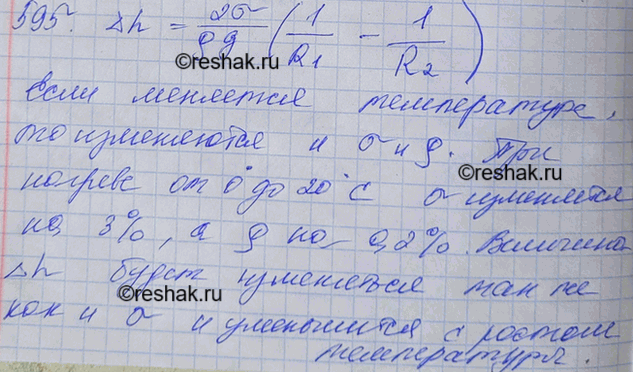 595. Δh = 2σ/ρg (1/R1 - 1/R2)
©reshak.ru
©reshak.ru
если меняется температура,
то изменяются и σ и ρ. При
нагреве от 0° до 20°С σ изменяется
на 3%, а ρ на 0,2%. Величина
Δh будет изменяться так же
©reshak.ru
как и σ и уменьшится с ростом
температуры.